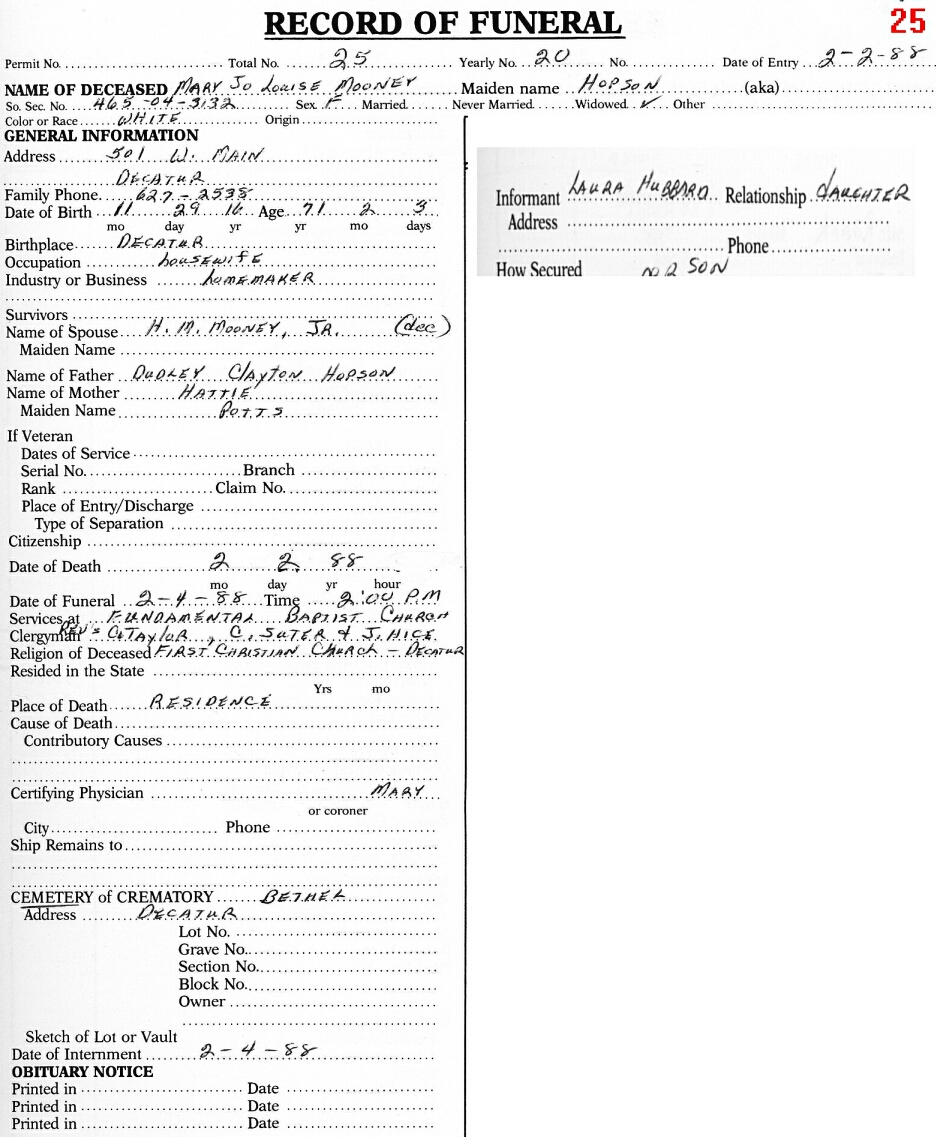 RECORD OF FUNERAL
25
Permit No. Total No. 25 Yearly No. 20 No. Date of Entry 2-2-88
NAME OF DECEASED MARY JO LOUISE MOONEY Maiden name HOPSON (aka)
So. Sec. No. 465-04-3132 Sex F Married Never Married Widowed ✓ Other
Color or Race WHITE Origin
GENERAL INFORMATION
Address 501 W. MAIN
DECATUR
Family Phone 627-2538
Date of Birth 11 29 16 Age 71 2 3
mo day yr yr mo days
Birthplace DECATUR
Occupation housewife
Industry or Business homemaker
Survivors
Name of Spouse H. M. MOONEY, JR. (dec)
Maiden Name
Name of Father DUDLEY CLAYTON HOPSON
Name of Mother HATTIE
Maiden Name POTTS
If Veteran
Dates of Service
Serial No. Branch
Rank Claim No.
Place of Entry/Discharge
Type of Separation
Citizenship
Date of Death 2 2 88
mo day yr hour
Date of Funeral 2-4-88 Time 2:00 PM
Services at FUNDAMENTAL BAPTIST CHURCH
Clergyman REV'S C. TAYLOR, C. SUTER & J. HICE
Religion of Deceased FIRST CHRISTIAN CHURCH - DECATUR
Resided in the State
Yrs mo
Place of Death RESIDENCE
Cause of Death
Contributory Causes
Certifying Physician MARY
or coroner
City Phone
Ship Remains to
CEMETERY of CREMATORY BETHEL
Address DECATUR
Lot No.
Grave No.
Section No.
Block No.
Owner
Sketch of Lot or Vault
Date of Internment 2-4-88
OBITUARY NOTICE
Printed in Date
Printed in Date
Printed in Date
Informant LAURA HUBBARD Relationship DAUGHTER
Address
Phone
How Secured SON